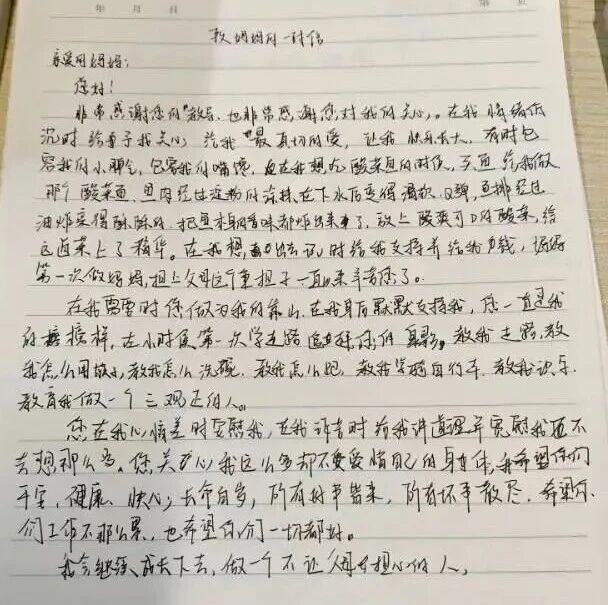 年 月 日 第 页
致妈妈的一封信
亲爱的妈妈:
您好!
非常感谢您的教导,也非常感谢您对我的关心。在我情绪低
沉时给予了我关心,给我最真切的爱,让我快乐长大,有时包
容我的小脾气,包容我的嘴馋,在我想吃酸菜鱼的时候,给我做
那个酸菜鱼,鱼肉经过淀粉的涂抹,在下水后变得滑软Q弹,鱼排经过
油炸变得酥酥的,把鱼本身的香味都炸出来了,放上酸爽可口的酸菜,给
这道菜上了精华。在我想出去玩时给我支持并给我力钱,
第一次做妈妈,担上父母这个重担子一直以来辛苦您了。
在我需要时您做为我的靠山,在我身后默默支持我,您一直是我
的榜样,在小时候第一次学走路您的身影。教我走路,教
我怎么用,教我怎么洗碗,教我怎么吃,教我学骑自行车,教我识字,
教育我做一个三观正的人。
您在我心情差时安慰我,在我诉苦时给我讲道理并宽慰我不
去想那么多。您关心我这么多却不爱惜自己的身体,我希望你们
平安,健康,快乐,去奔自多,所有好事皆来,所有坏事散尽,希望你
们工作不那么累,也希望你们一切都好。
我会继续成长下去,做一个不让父母担心的人。